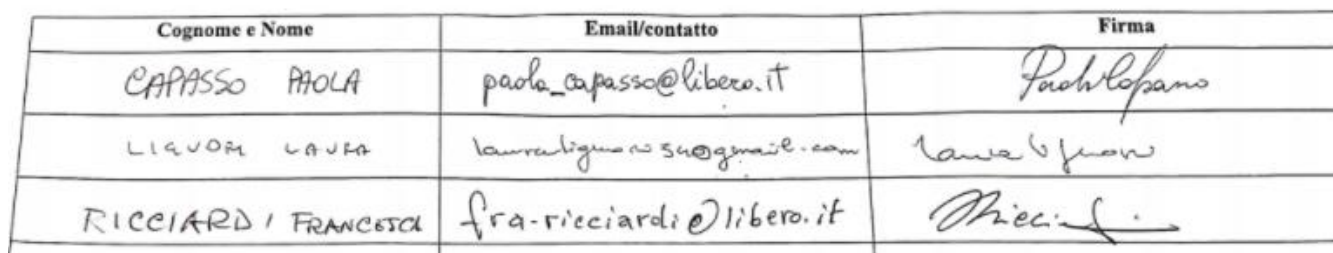 Cognome e Nome Email/contatto Firma
CAPASSO PAOLA paola_capasso@libero.it Paola Capasso
LIQUORI LAURA Laura Liquori
RICCIARDI FRANCESCA fra-ricciardi@libero.it